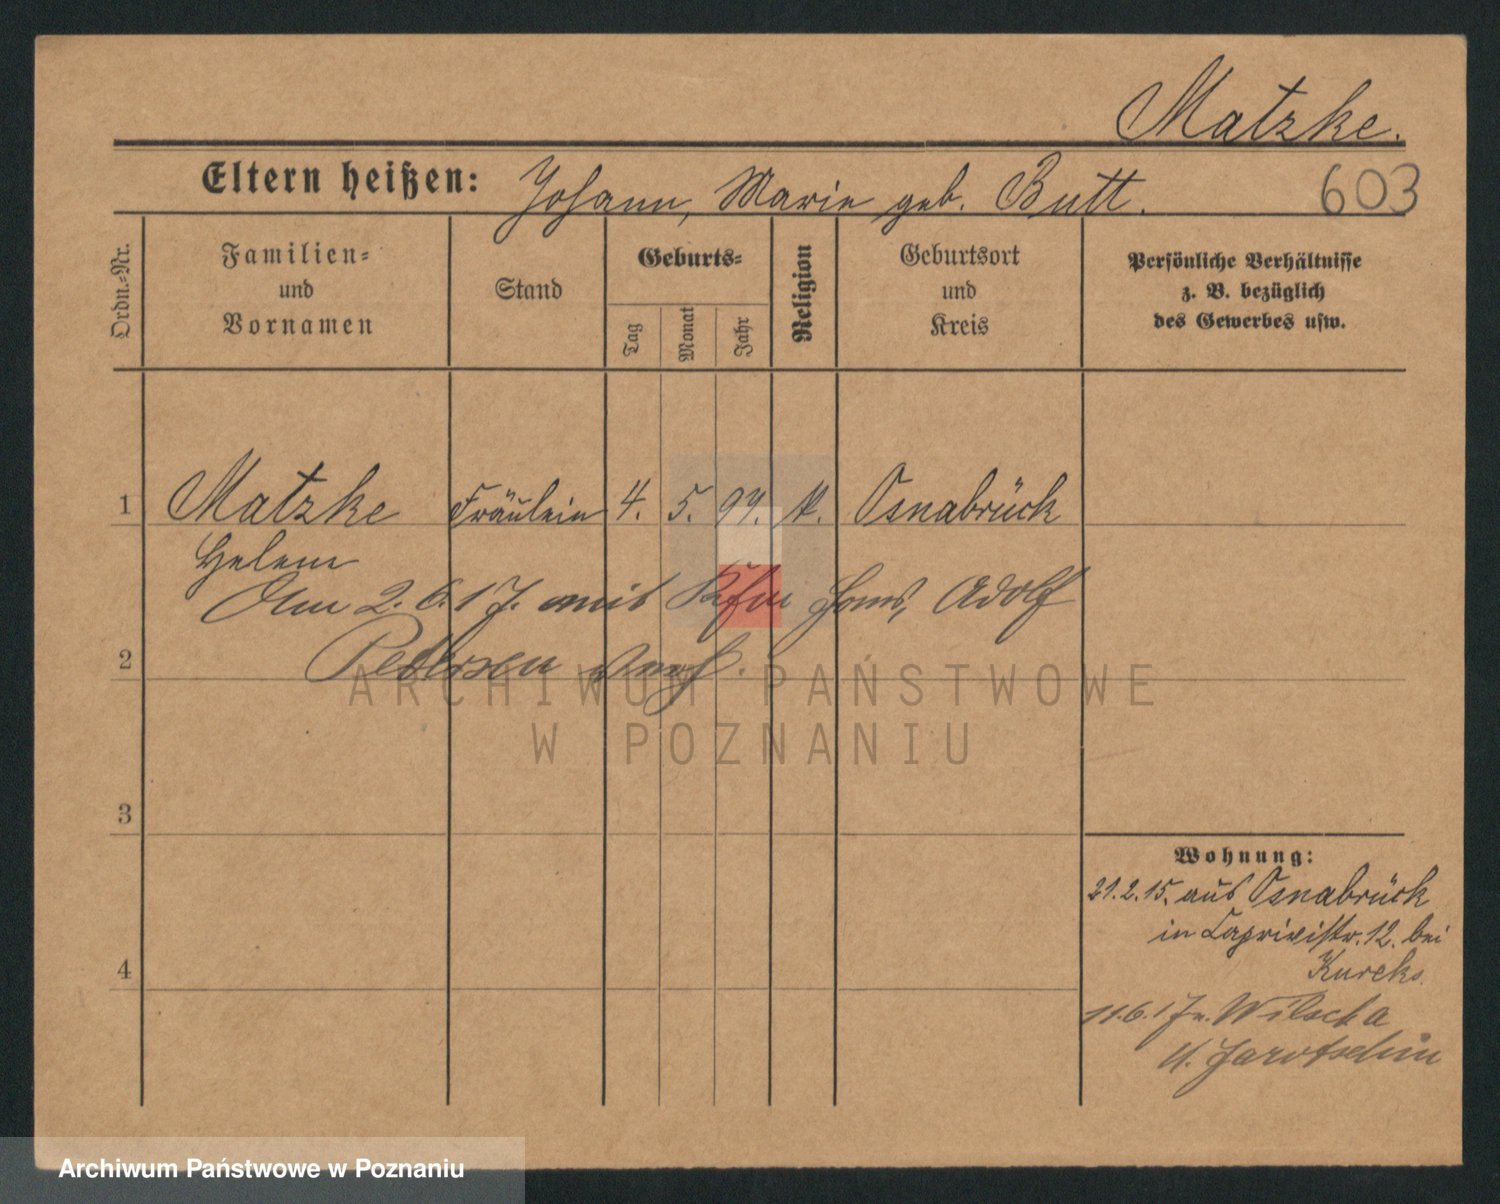 Matzke.
Eltern heißen: Johann, Marie geb. Butt.
603
Ordn.-Nr.
Familien-
und
Vornamen
Stand
Geburts-
Tag
Monat
Jahr
Religion
Geburtsort
und
Kreis
Persönliche Verhältnisse
z. B. bezüglich
des Gewerbes usw.
1 Matzke Fräulein 4. 5. 99. k. Osnabrück
Helene
Am 2. 6. 17. mit Kfm Hans, Adolf
2 Petersen verh.
3
4
Wohnung:
21.2.15. aus Osnabrück
in Caprivistr. 12. bei
Kureks.
11.6.17 n. Wilscha
K. Jarotschin
ARCHIWUM PAŃSTWOWE
W POZNANIU
Archiwum Państwowe w Poznaniu